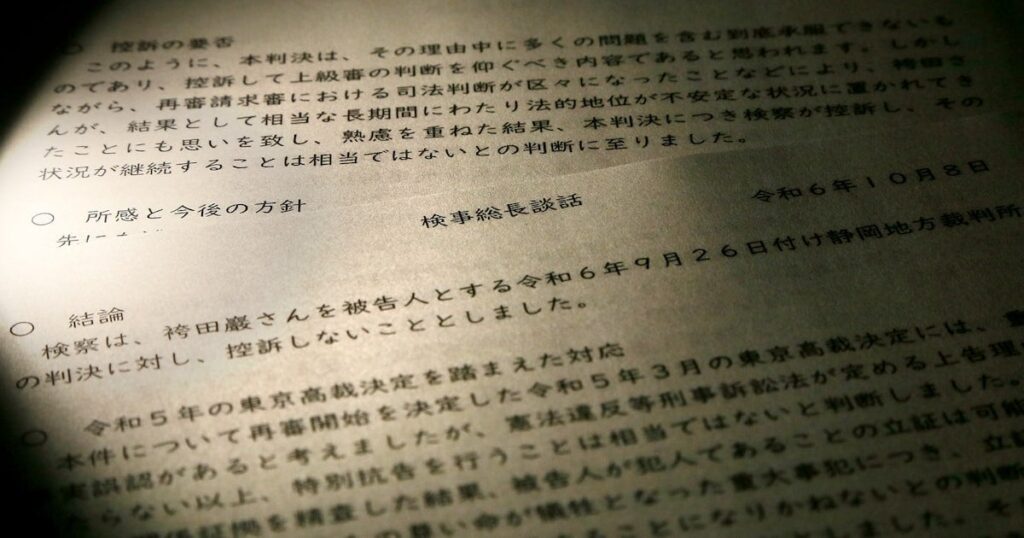 ○ 控訴の要否
このように、本判決は、その理由中に多くの問題を含む到底承服できないも
のであり、控訴して上級審の判断を仰ぐべき内容であると思われます。しかし
ながら、再審請求審における司法判断が区々になったことなどにより、袴田さ
んが、結果として相当な長期間にわたり法的地位が不安定な状況に置かれてき
たことにも思いを致し、熟慮を重ねた結果、本判決につき検察が控訴し、その
状況が継続することは相当ではないとの判断に至りました。
○ 所感と今後の方針
検事総長談話
令和6年10月8日
○ 結論
検察は、袴田巖さんを被告人とする令和6年9月26日付け静岡地方裁判所
の判決に対し、控訴しないこととしました。
○ 令和5年の東京高裁決定を踏まえた対応
本件について再審開始を決定した令和5年3月の東京高裁決定には、重
実誤認があると考えましたが、憲法違反等刑事訴訟法が定める上告理
らない以上、特別抗告を行うことは相当ではないと判断しました。
証拠を精査した結果、被告人が犯人であることの立証は可能
の尊い命が犠牲となった重大事犯につき、立証
ることになりかねないとの判断
としました。そ